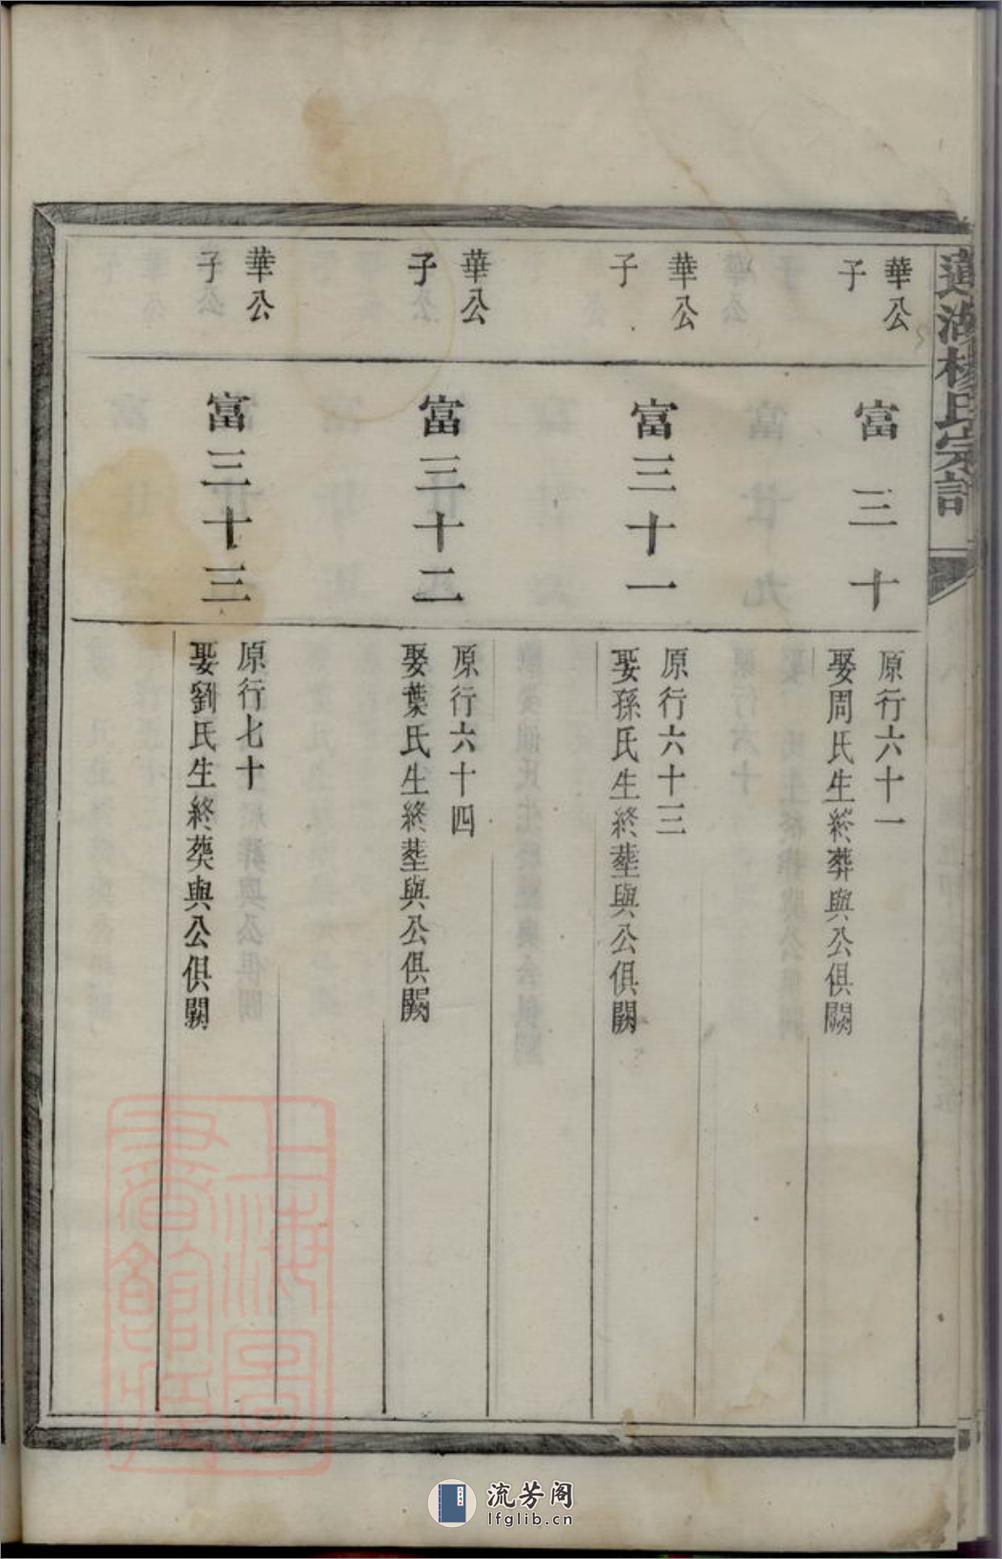 蓮湖楊氏宗譜
華公
子
富三十
原行六十一
娶周氏生終葬與公俱闕
華公
子
富三十一
原行六十三
娶孫氏生終塟與公俱闕
華公
子
富三十二
原行六十四
娶葉氏生終塟與公俱闕
華公
子
富三十三
原行七十
娶劉氏生終葬與公俱闕
上海圖
書館藏
流芳阁
lfglib.cn